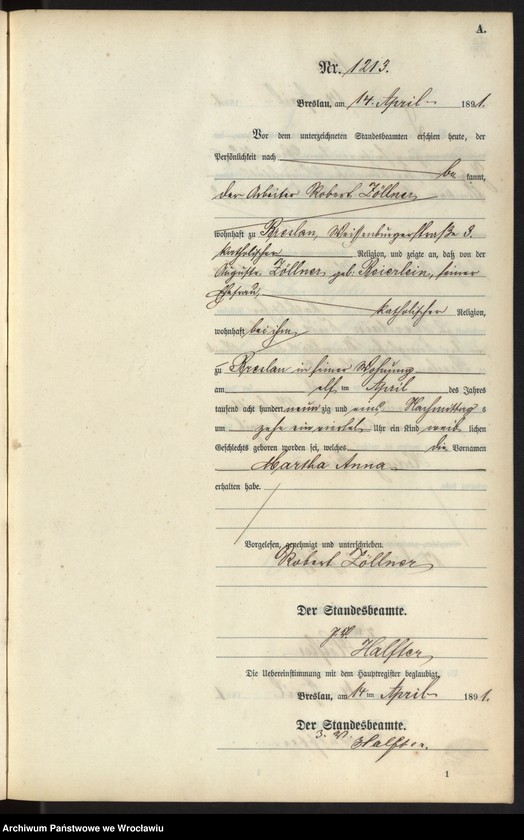 A.
Nr. 1213.
Breslau, am 14. April 1891.
Vor dem unterzeichneten Standesbeamten erschien heute, der
Persönlichkeit nach
be kannt,
der Arbeiter Robert Zöllner
wohnhaft zu Breslau, Weißenburgerstraße 3.
katholischer Religion, und zeigte an, daß von der
Auguste Zöllner geb: Beierlein, seiner
Ehefrau,
katholischer Religion,
wohnhaft bei ihm,
zu Breslau in seiner Wohnung
am elf ten April des Jahres
tausend acht hundert neun zig und eins, Nachmittag s
um zehn ein viertel Uhr ein Kind weib lichen
Geschlechts geboren worden sei, welches die Vornamen
Martha Anna
erhalten habe.
Vorgelesen, genehmigt und unterschrieben.
Robert Zöllner
Der Standesbeamte.
J. V.
Halfter
Die Uebereinstimmung mit dem Hauptregister beglaubigt,
Breslau, am 14 ten April 1891.
Der Standesbeamte.
J. V.
Halfter.
1
Archiwum Państwowe we Wrocławiu